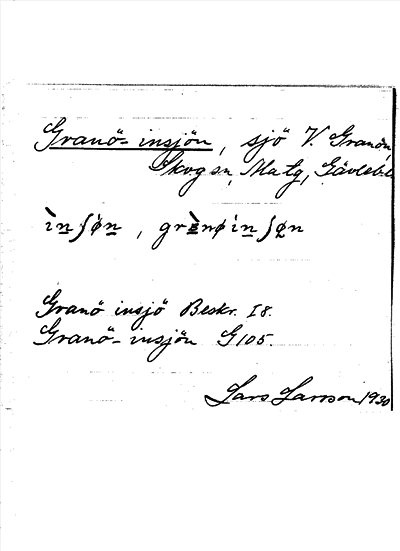 Granö-insjön, sjö V. Granön,
Skogsn, Matg, Gävleb.l
ìnʃø̀n, grànøìnʃøn
Granö insjö Beskr. I 8.
Granö-insjön G 105.
Lars Larsson 1930